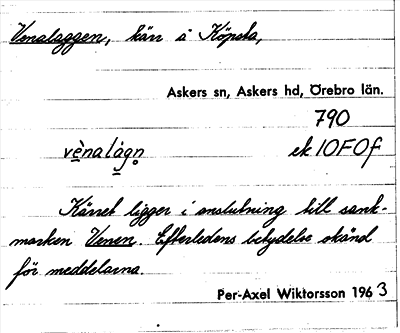 Venalaggen, kärr å Köpsta,
Askers sn, Askers hd, Örebro län.
790
vènalàgn̥ ek 10F0f
Kärret ligger i anslutning till sank-
marken Venen. Efterledens betydelse okänd
för meddelarna.
Per-Axel Wiktorsson 1963